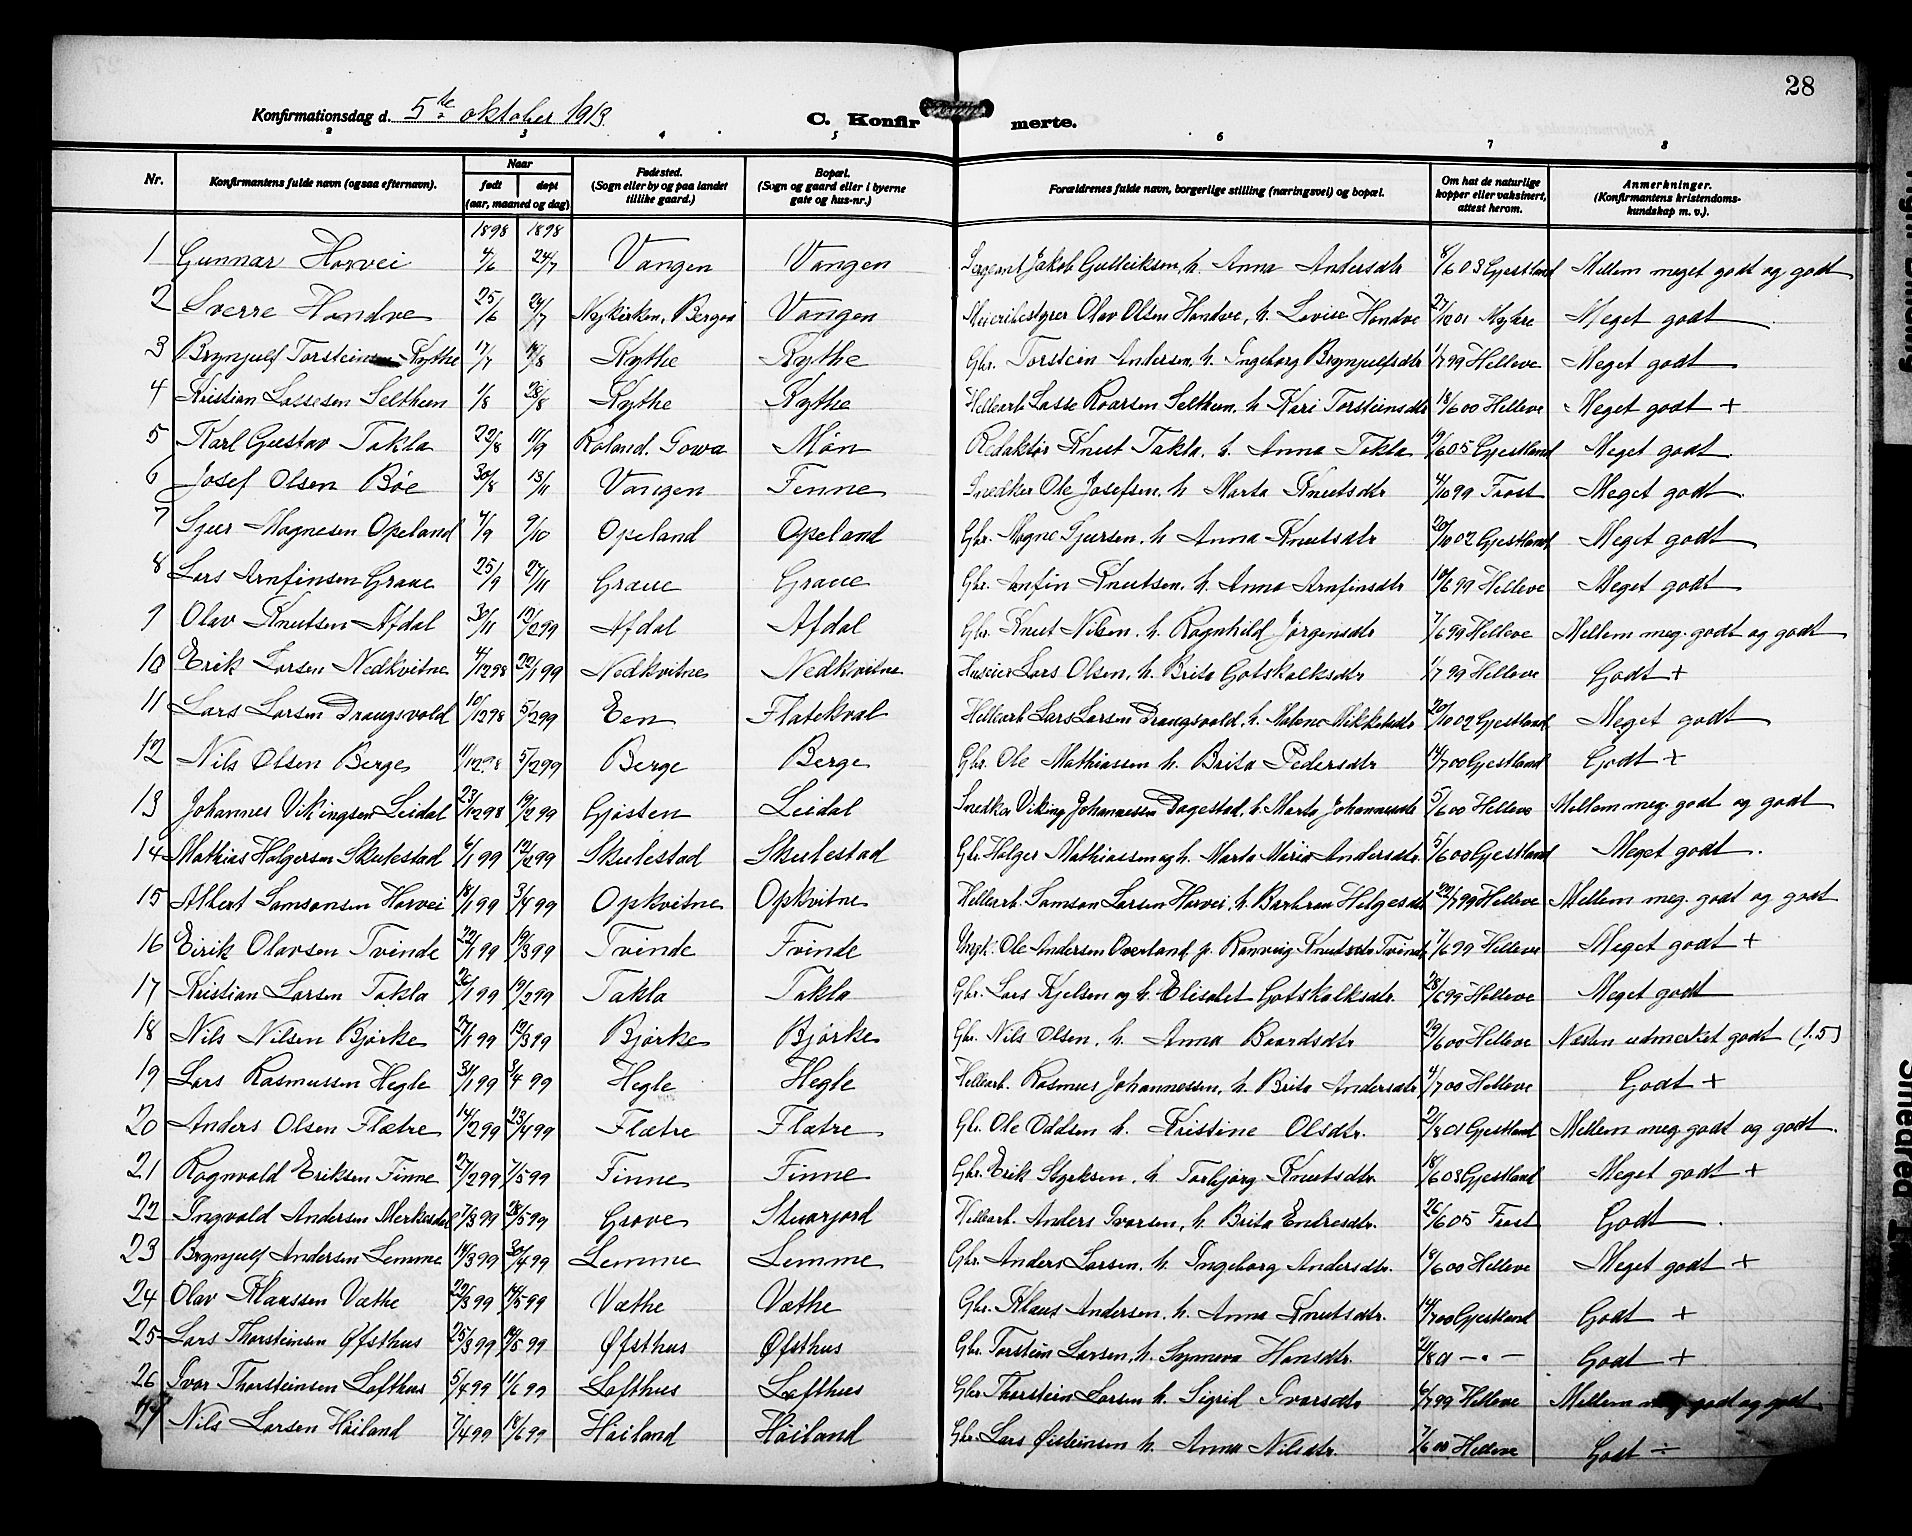 28
Konfirmationsdag d. 5te oktober 1913. C. Konfirmerte.
2 3 4 5 6 7 8
Nr. Konfirmantens fulde navn (ogsaa efternavn). Naar født døpt (aar, maaned og dag) Fødested. (Sogn eller by og paa landet tillike gaard.) Bopæl. (Sogn og gaard eller i byerne gate og hus-nr.) Forældrenes fulde navn, borgerlige stilling (næringsvei) og bopæl. Om hat de naturlige kopper eller vaksinert, attest herom. Anmerkninger. (Konfirmantens kristendomskundskap m. v.).
1898 1898
1 Gunnar Horvei 4/6 24/7 Vangen Vangen Sergeant Jakob Gulleiksen, h. Anna Andersdtr 6/6 03 Gjestland Mellem meget godt og godt
2 Sverre Handve 25/6 24/7 Nykirken, Bergen Vangen Meieribestyrer Olav Olsen Handve, h. Lovise Handve 27/12 01 Myhre Meget godt
3 Brynjulf Torsteinsen Kythe 17/7 14/8 Kythe Kythe Gbr. Torstein Andersen, h. Ingeborg Brynjulfsdtr 1/7 99 Helleve Meget godt
4 Kristian Lassesen Seltheim 1/8 28/8 Kythe Kythe Hellearb. Lasse Roarsen Seltheim, h. Kari Torsteinsdtr 18/6 00 Helleve Meget godt +
5 Karl Gustav Takla 22/8 11/9 Roland. Iowa Møn Redaktør Knut Takla, h. Anna Takla 19/6 05 Gjestland Meget godt.
6 Josef Olsen Bøe 30/8 13/11 Vangen Finne Snedker Ole Josefsen, h. Marta Knutsdtr 4/10 99 Frost Meget godt.
7 Sjur Magnesen Opeland 4/9 9/10 Opeland Opeland Gbr. Magne Sjursen, h. Anna Knutsdtr 20/10 02 Gjestland Meget godt
8 Lars Arnfinsen Graue 25/9 27/11 Graue Graue Gbr. Anfin Knutsen, h. Anna Arnfinsdtr 10/6 99 Helleve Meget godt
9 Olav Knutsen Afdal 30/11 12/2 99 Afdal Afdal Gbr. Knut Nilsen, h. Ragnhild Jørgensdtr 7/6 99 Helleve Mellem meg. godt og godt
10 Erik Larsen Nedkvitne 4/12 98 22/1 99 Nedkvitne Nedkvitne Huseier Lars Olsen, h. Brita Gotskalksdtr 1/7 99 Helleve Godt +
11 Lars Larsen Draugsvold 10/12 98 5/2 99 Een Flatekval Hellearb Lars Larsen Draugsvold, h. Malene Mikkelsdtr 20/10 02 Gjestland Meget godt
12 Nils Olsen Berge 11/12 98 5/2 99 Berge Berge Gbr. Ole Mathiassen h. Brita Pedersdtr 14/7 00 Gjestland Godt +
13 Johannes Vikingsen Leidal 23/12 98 19/2 99 Gjisten Leidal Snedker Viking Johannessen Dagestad, h. Marta Johannesdtr 5/6 00 Helleve Mellem meg. godt og godt
14 Mathias Holgersen Skulestad 6/1 99 12/2 99 Skulestad Skulestad Gbr. Holger Mathiassen og h. Marta Maria Andersdtr. 5/6 00 Gjestland Meget godt.
15 Albert Samsonsen Horvei 18/1 99 3/4 99 Opkvitne Opkvitne Hellearb. Samson Larsen Horvei, h. Barbran Helgesdtr 22/7 99 Helleve Mellem meg. godt og godt
16 Eirik Olavsen Tvinde 22/1 99 19/3 99 Tvinde Tvinde Ungk. Ole Andersen Overland, p. Ranveig Knutsdtr Tvinde 7/6 99 Helleve Meget godt +
17 Kristian Larsen Takla 26/1 99 19/2 99 Takla Takla Gbr. Lars Kjelsen og h. Elisabet Gotskalksdtr. 28/6 99 Helleve Meget godt
18 Nils Nilsen Bjørke 27/1 99 12/3 99 Bjørke Bjørke Gbr. Nils Olsen, h. Anna Baardsdtr 29/6 00 Helleve Næsten udmerket godt (1.5)
19 Lars Rasmussen Hegle 31/1 99 3/4 99 Hegle Hegle Hellearb. Rasmus Johannessen, h. Brita Andersdtr 4/7 00 Helleve Godt +
20 Anders Olsen Flatre 14/2 99 23/4 99 Flatre Flatre Gbr. Ole Oddsen h. Kristine Olsdtr. 21/8 01 Gjestland Mellem meg. godt og godt.
21 Ragnvald Eriksen Finne 27/2 99 7/5 99 Finne Finne Gbr. Erik Styrksen, h. Torbjørg Knutsdtr 18/6 03 Gjestland Meget godt +
22 Ingvald Andersen 7/3 99 28/5 99 Grove Skuarjord Hellearb. Anders Ivarsen, h. Brita Endresdtr. 26/6 05 Frost Godt.
23 Brynjulf Andersen Lemme 14/3 99 30/4 99 Lemme Lemme Gbr. Anders Larsen, h. Ingeborg Andersdtr. 18/6 00 Helleve Meget godt +
24 Olav Klaussen Væthe 22/3 99 14/5 99 Væthe Væthe Gbr. Klaus Andersen, h. Anna Knutsdtr. 14/7 00 Gjestland Godt +
25 Lars Thorsteinsen Øfsthus 25/3 99 14/5 99 Øfsthus Øfsthus Gbr. Torstein Larsen, h. Synneva Hansdtr. 21/8 01 — " — Godt +
26 Ivar Thorsteinsen Lofthus 5/4 99 11/6 99 Lofthus Lofthus Gbr. Thorstein Larsen h. Sigrid Ivarsdtr 6/7 99 Helleve Mellem meg godt og godt
27 Nils Larsen Håiland 7/4 99 18/6 99 Håiland Håiland Gbr. Lars Øisteinsen h. Anna Nilsdtr. 7/6 00 Helleve Godt ÷